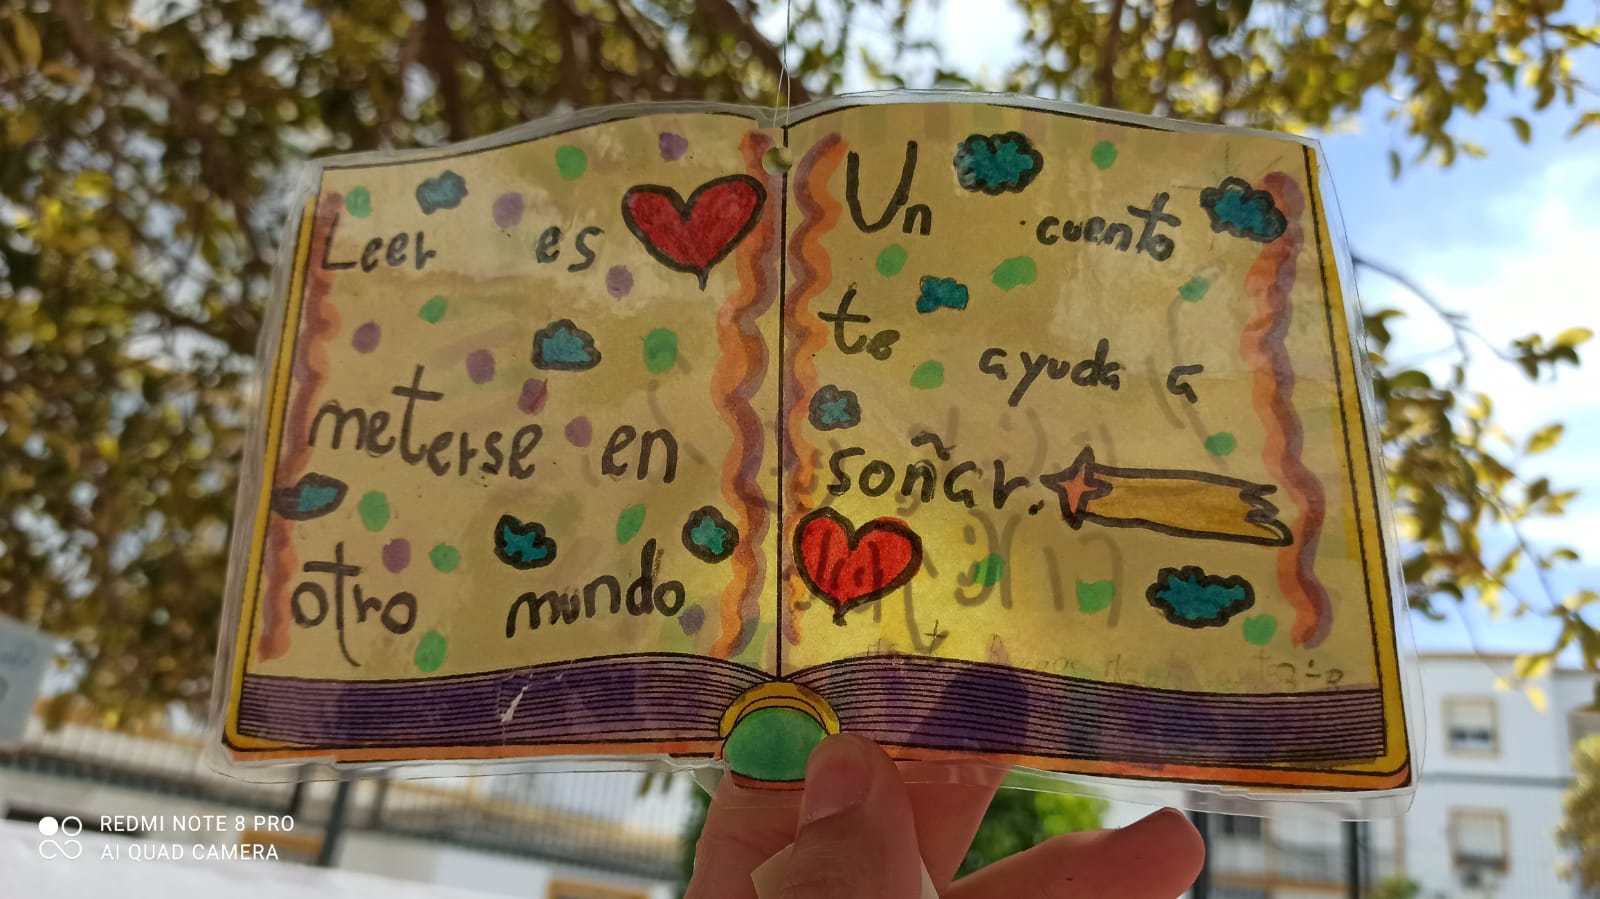 Leer es
meterse en
otro mundo
Un cuento
te ayuda a
soñar.
REDMI NOTE 8 PRO
AI QUAD CAMERA